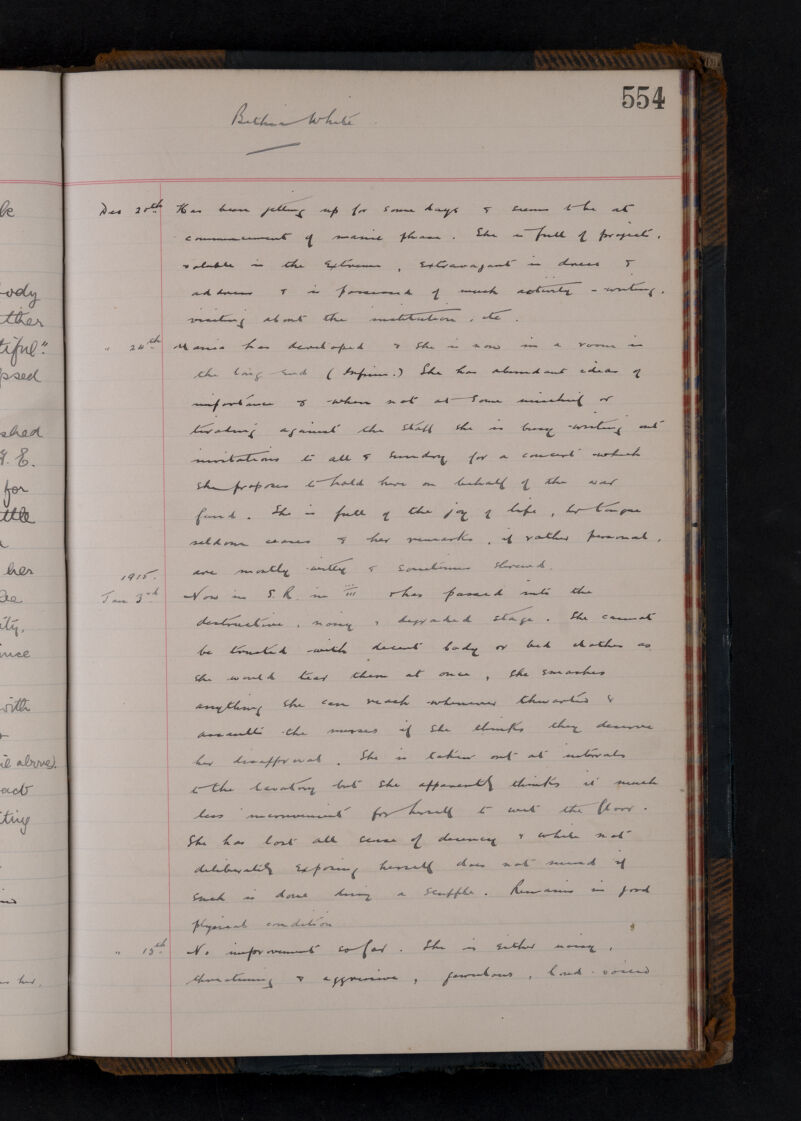 554
Bethia White
be
Dec 20th Has been getting up for some days & seems to be at
commencement of manic phase. She is full of projects,
voluble in the extreme, extravagant in dress &
ody
address & is possessed of much activity - writing,
ther
visiting about the institution, etc.
tiful".
" 24th Mania has developed & she is now in a room in
psed
the long end (Infirm.) She has abundant ideas of
importance & when not at some mischief or
shed
tirading against the staff she is busy writing out
G. E.
invitations to all & sundry for a concert which
for
she proposes to hold here on behalf of the war
ttle
fund. She is full of the joy of life, her tongue
seldom ceases & her remarks, if rather personal,
her
are mostly witty & sometimes shrewd.
1915.
Jan 3rd Now in S.R. in III & has passed into the
destructive, noisy & degraded stage. She cannot
ity.
be trusted with decent body or bed clothes as
ince
she would tear them at once, she smashes
with
anything she can reach whenever thwarted &
assaults the nurses if she thinks they deserve
her disapproval. She is taken out at intervals
above.
to the lavatory but she apparently thinks it much
act
less inconvenient for herself to wet the floor.
ting
She has lost all sense of decency & while not
deliberately exposing herself does not mind if
such is done during a scuffle. Remains in good
physical condition
" 15th No improvement so far. She is either noisy,
her.
threatening & aggressive, garrulous, loud-voiced